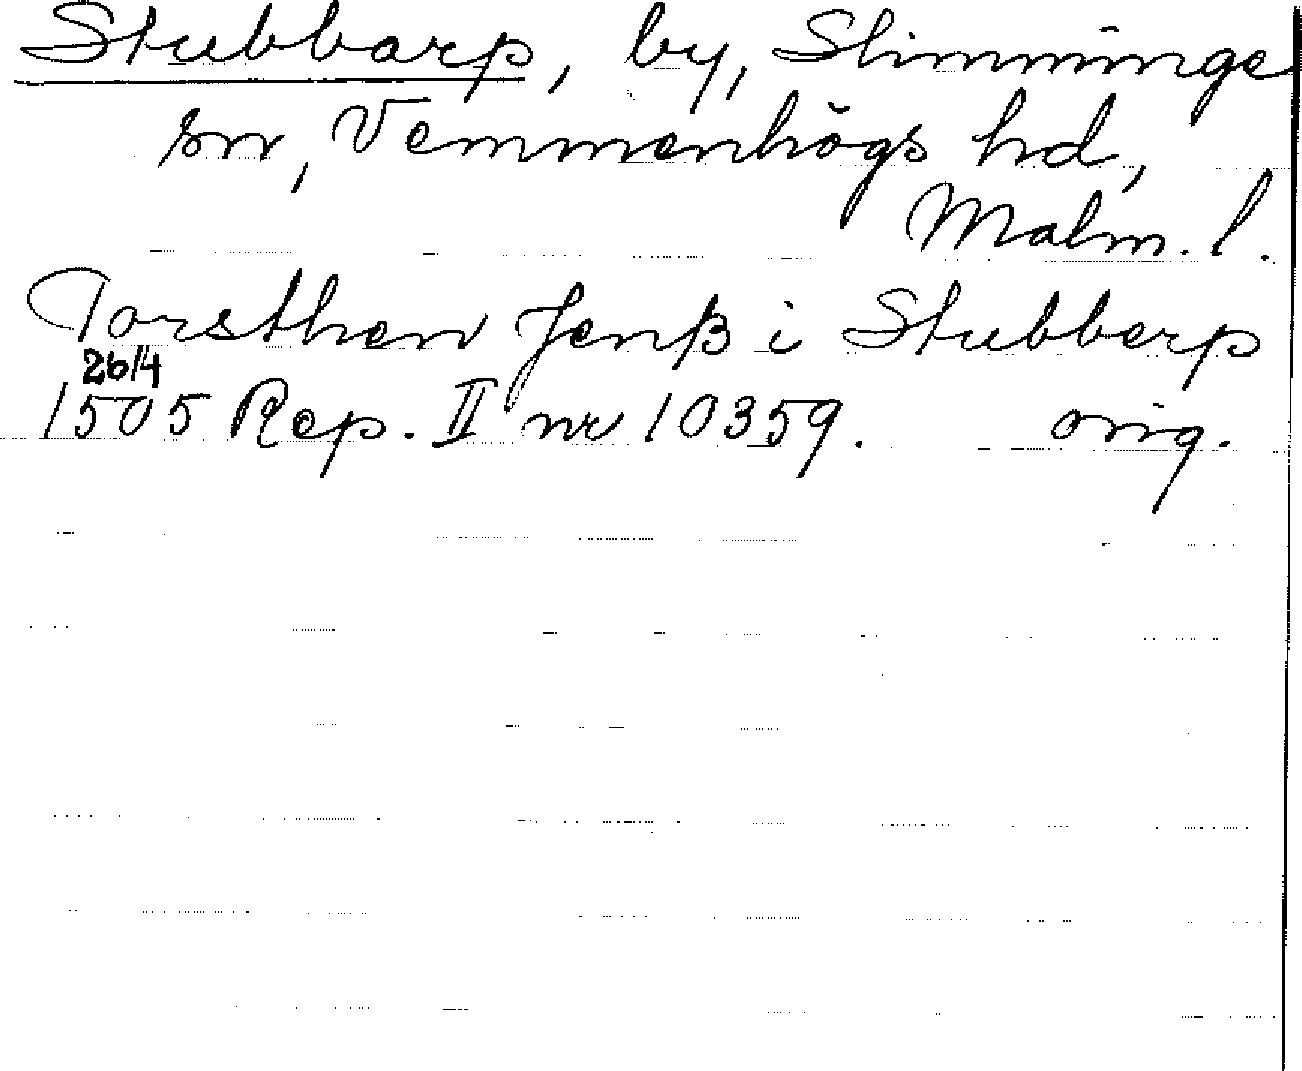 Stubbarp, by, Slimminge
sn, Vemmenhögs hd,
Malm. l.
Torsthen Jenß i Stubberp
26/4
1505 Rep. II nr 10359. orig.